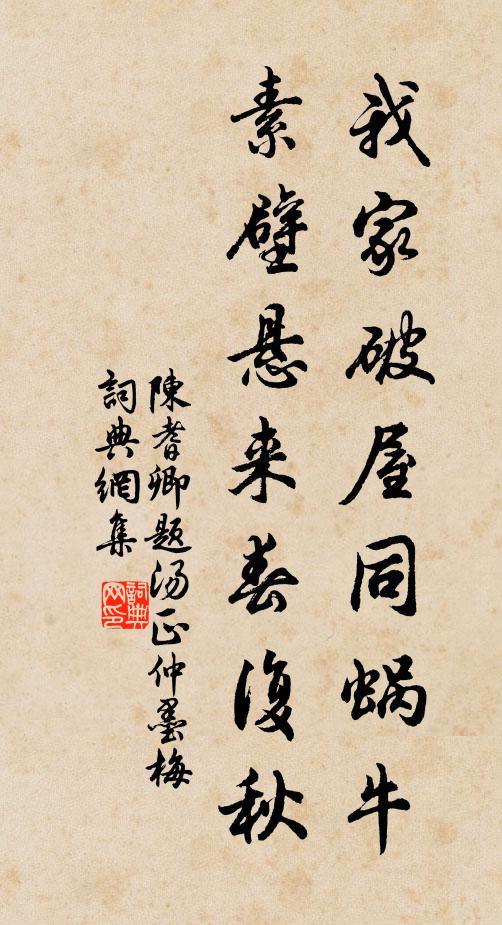 我家破屋同蜗牛
素壁悬来春复秋
陳耆卿題汤正仲墨梅
詞典網集
詞典网印